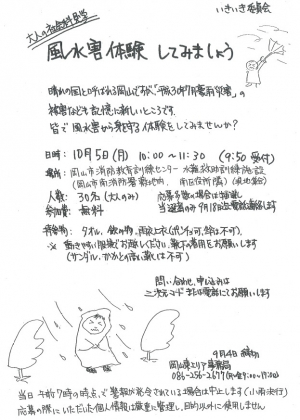 いきいき委員会
大人の社会科見学
風水害体験 してみましょう
晴れの国と呼ばれる岡山ですが「平成30年7月豪雨災害」の
被害なども記憶に新しいところです.
皆で風水害から身を守る体験をしてみませんか?
日時: 10月5日(月) 10:00〜11:30 (9:50 受付)
場所: 岡山市消防教育訓練センター 水難救助訓練施設
(岡山市南消防署敷地内 南区役所隣)(現地集合)
人数: 30名 (大人のみ) 応募多数の場合は抽選
参加費: 無料 当選者のみ 9月18日迄電話連絡します
持参物: タオル, 飲み物, 雨具上衣(ポンチョ可, 傘は不可).
※ 動きやすい服装でお越しください. 靴下の着用をお願いします
(サンダル, かかとの高い靴は不可)
問い合わせ, 申し込みは
二次元コードまたは電話にてお願いします
9月4日締切
岡山東エリア事務局
086-256-2677 (月〜金 9:00〜17:00)
当日 午前7時の時点で警報が発令されている場合は中止します (小雨決行)
応募の際にいただいた個人情報は厳重に管理し, 目的以外に使用しません